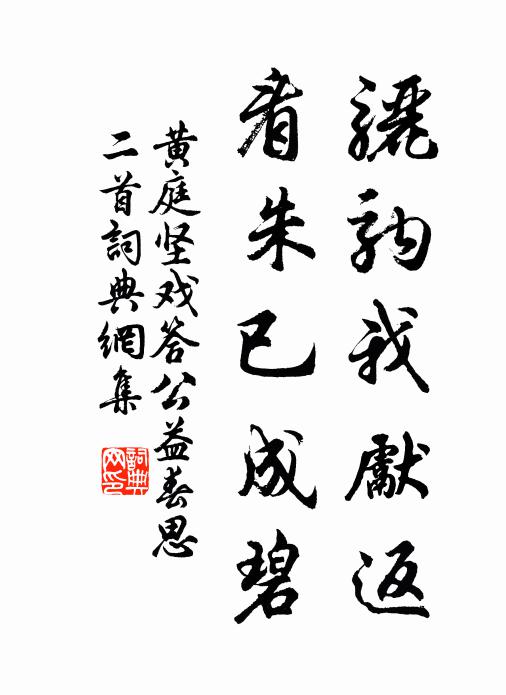 驪駒我獻返
看朱已成碧
黃庭坚戏答公益春思
二首詞典網集
詞典
网印